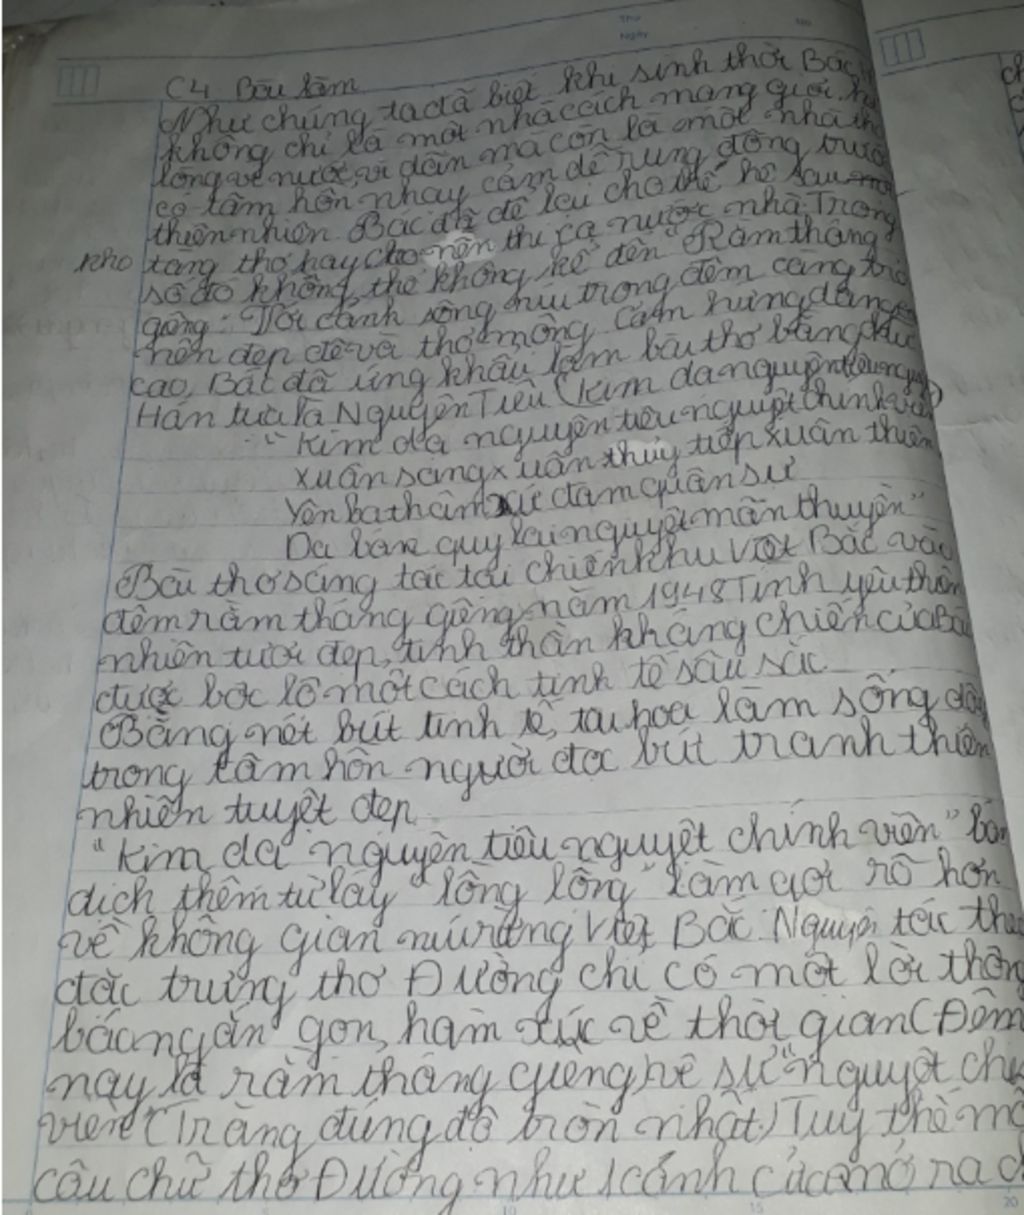 Thứ
Ngày
No
C4 Bài làm
Như chúng ta đã biết khi sinh thời Bác
không chỉ là một nhà cách mạng giỏi, hế
lòng vì nước, vì dân mà còn là một nhà th
có tâm hồn nhạy cảm dễ rung động trướ
thiên nhiên. Bác đã để lại cho thế hệ sau một
kho tàng thơ hay cho nền thi ca nước nhà. Trong
số đó không thể không kể đến "Rằm tháng
giêng": Với cảnh sông núi trong đêm càng trở
nên đẹp đẽ và thơ mộng cảm hứng dâng
cao, Bác đã ứng khẩu làm bài thơ bằng chữ
Hán tựa là Nguyên Tiêu (kim dạ nguyên tiêu nguy)
"Kim dạ nguyên tiêu nguyệt chính viên
Xuân sang xuân thủy tiếp xuân thiên
Yên ba thâm xứ đàm quân sự
Dạ ban quy lai nguyệt mãn thuyền"
Bài thơ sáng tác tại chiến khu Việt Bắc vào
đêm rằm tháng giêng năm 1948 Tình yêu thiên
nhiên tươi đẹp, tinh thần kháng chiến của Bá
được bộc lộ một cách tinh tế sâu sắc
Bằng nét bút tinh tế, tài hoa làm sống dậ
trong tâm hồn người đọc bút tranh thiên
nhiên tuyệt đẹp
"Kim dạ nguyên tiêu nguyệt chính viên" bản
dịch thêm từ láy "lồng lộng" làm gợi rõ hơn
về không gian núi rừng Việt Bắc. Nguyên tác the
đặc trưng thơ Đường chỉ có một lời thôn
báo ngắn gọn, hàm xúc về thời gian (Đêm
nay là rằm tháng giêng) về sự "nguyệt chí
viên" (Trăng đúng độ tròn nhất) Tuy thế mỗ
câu chữ thơ Đường như 1 cánh cửa mở ra c
10
15
20